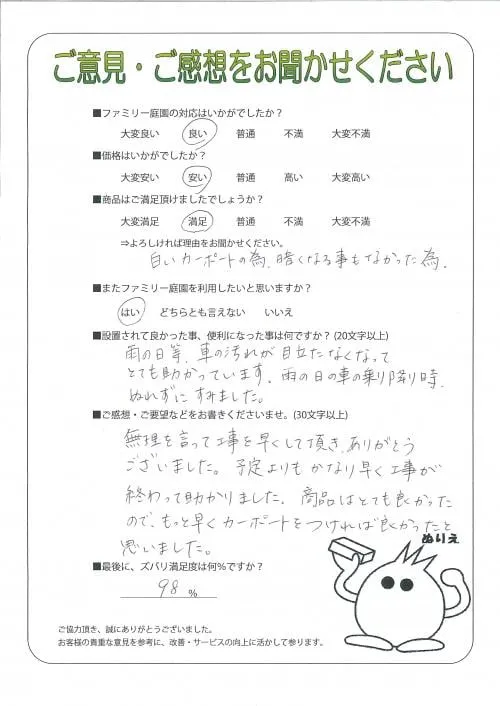 ご意見・ご感想をお聞かせください
■ファミリー庭園の対応はいかがでしたか？
大変良い 良い 普通 不満 大変不満
■価格はいかがでしたか？
大変安い 安い 普通 高い 大変高い
■商品はご満足頂けましたでしょうか？
大変満足 満足 普通 不満 大変不満
⇒よろしければ理由をお聞かせください。
白いカーポートの為、暗くなる事もなかった為、
■またファミリー庭園を利用したいと思いますか？
はい どちらとも言えない いいえ
■設置されて良かった事、便利になった事は何ですか？(20文字以上)
雨の日等、車の汚れが目立たなくなって
とても助かっています、雨の日の車の乗り降り時、
ぬれずにすみました。
■ご感想・ご要望などをお書きくださいませ。(30文字以上)
無理を言って工事を早くして頂き、ありがとう
ございました。予定よりもかなり早く工事が
終わって助かりました。商品はとても良かった
ので、もっと早くカーポートをつければ良かったと
思いました。
ぬりえ
■最後に、ズバリ満足度は何％ですか？
98 %
ご協力頂き、誠にありがとうございました。
お客様の貴重な意見を参考に、改善・サービスの向上に活かして参ります。